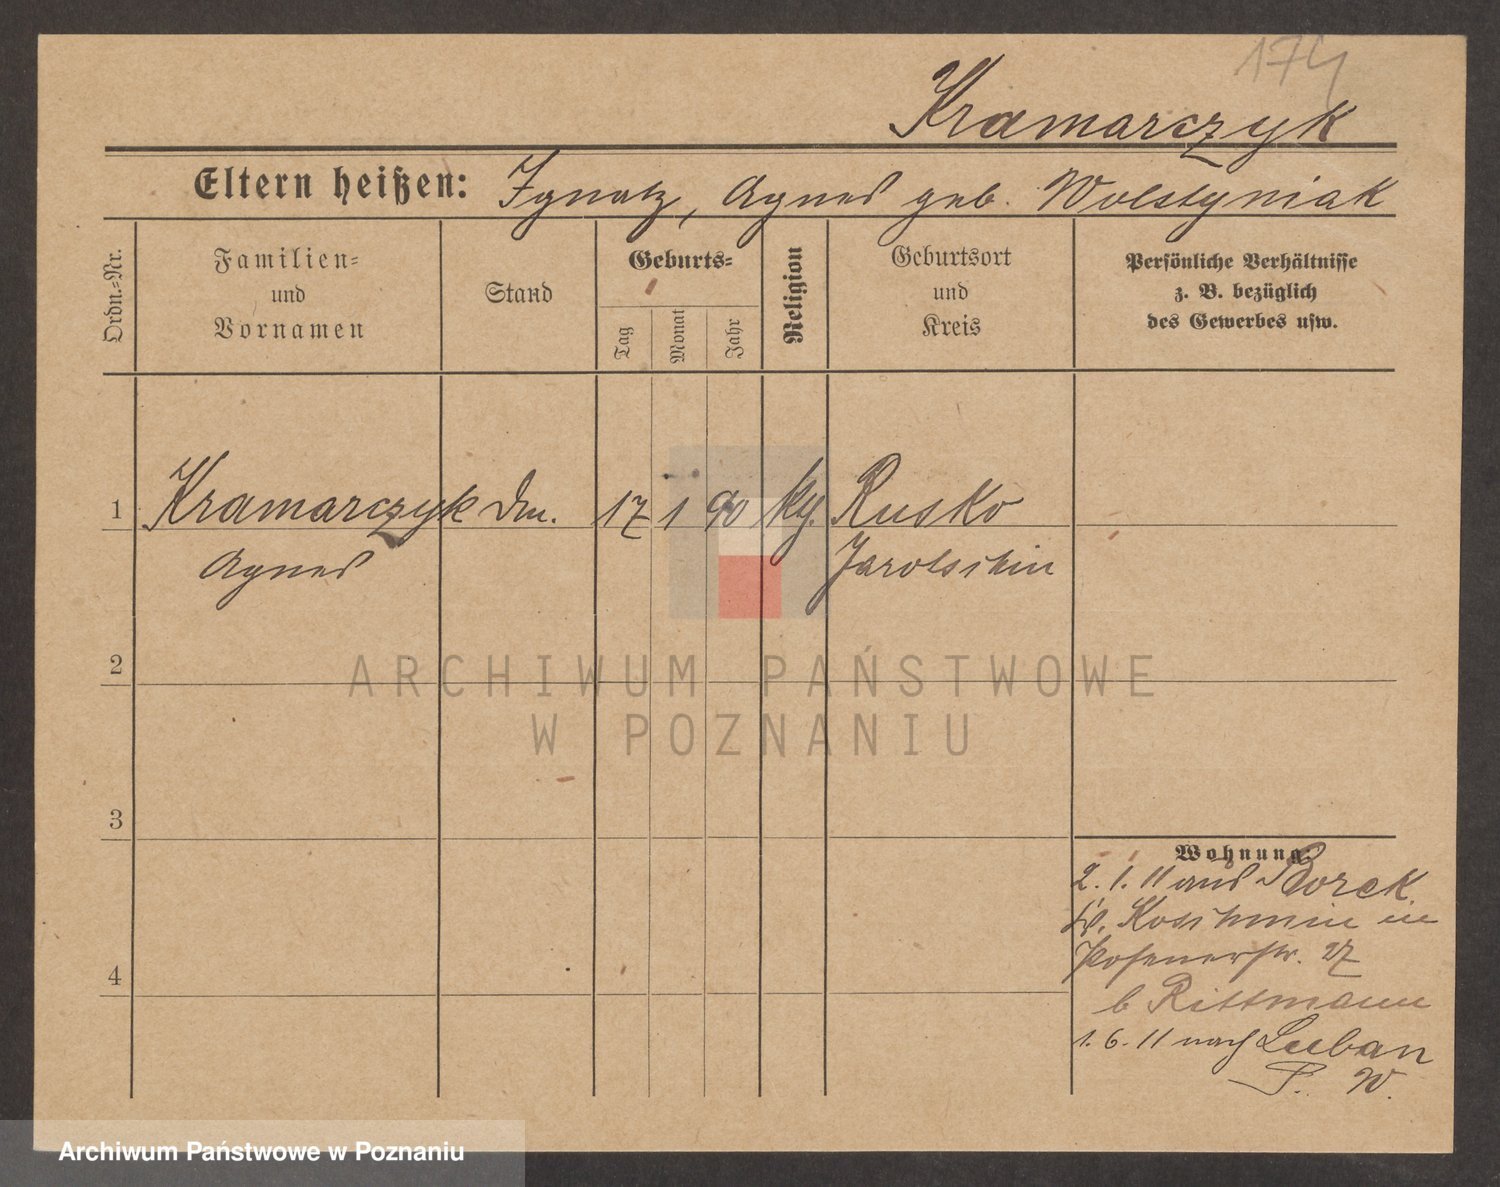 174
Kramarczyk
Eltern heißen: Ignatz, Agnes geb. Wolstyniak
Ordn.-Nr.
Familien-
und
Vornamen
Stand
Geburts-
Tag
Monat
Jahr
Religion
Geburtsort
und
Kreis
Persönliche Verhältnisse
z. B. bezüglich
des Gewerbes usw.
1 Kramarczyk 17 1 90 Rusko
Agnes Jarotschin
2
ARCHIWUM PAŃSTWOWE
W POZNANIU
3
Wohnung:
2. 1. 11 aus Borek
Koschmin in
Posenerstr. 27
b Rittmann
4
1. 6. 11 nach Luban
P. W.
Archiwum Państwowe w Poznaniu